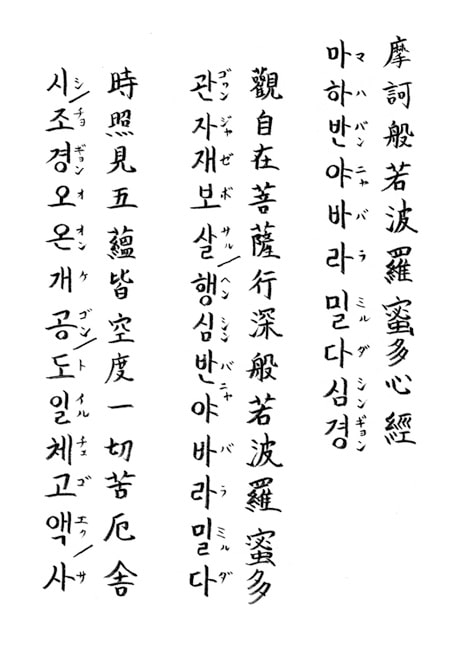 摩訶般若波羅蜜多心經
マハバンニャバラミルダシンギョン
마하반야바라밀다심경
觀自在菩薩行深般若波羅蜜多
ゴヮンジャゼボサル/ヘンシンバニャバラミルダ
관자재보살행심반야바라밀다
時照見五蘊皆空度一切苦厄舍
シ/チョギョンオオンケゴン/トイルチェゴエク/サ
시조경오온개공도일체고액사